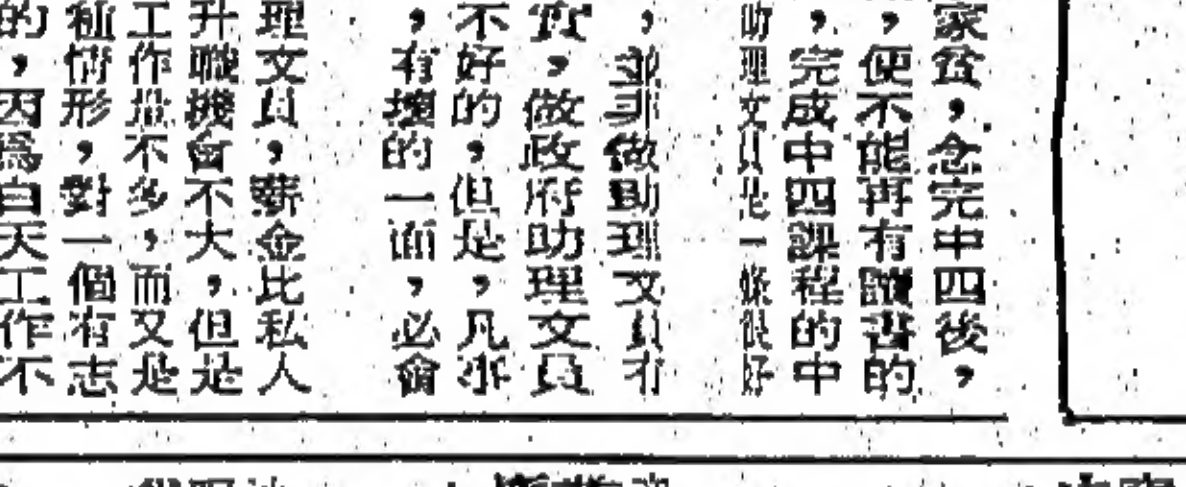 家貧，念完中四後，
，便不能再有讀書的
，完成中四課程的中
助理文員是一條很好
，並非做助理文員有
，做政府助理文員
不好的，但是，凡事
，有壞的一面，必會
理文員，薪金比私人
升職機會不大，但是
工作量不多，而又是
種情形，對一個有志
的，因為白天工作不